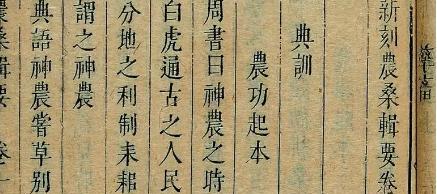 新刻農桑輯要卷
典訓
農功起本
周書曰神農之時
白虎通古之人民
分地之利制耒耜
謂之神農
典語神農嘗草別
農桑輯要 卷一